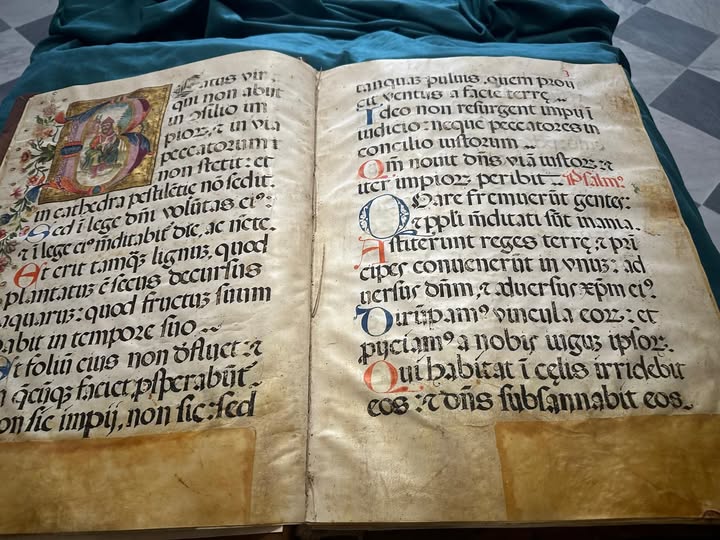 Beatus vir,
qui non abiit
in ɔsilio im
pioꝝ, ⁊ in via
peccatorum
non stetit: et
in cathedra pestilētie nō sedit.
Sed ī lege dn̄i volūtas eiꝰ:
⁊ ī lege eiꝰ m̄ditabit᷑ die, ac n̄cte.
Et erit tamꝙ̄ lignuꝫ, quod
plantatuꝫ ē secus decursus
aquaruꝫ: quod fructuꝫ suum
dabit in tempore suo
Et foliū eius non d̄fluet: ⁊
faciet, ꝓsperabūt᷑.
Non sic impij, non sic: sed
tanquaꝫ puluis, quem proij
cit ventus a facie terrę
Ideo non resurgent impij ī
iudicio: neque peccatores in
concilio iustorum
Qm̄ nouit dn̄s viā iustoꝝ: ⁊
iter impioꝝ peribit Psalmꝰ
Quare fremuerūt gentes:
⁊ ppl̄i m̄ditati sūt inania.
Astiterunt reges terrę, ⁊ pri
cipes conuenerūt in vnuꝫ: ad
uersus dn̄m, ⁊ aduersus xp̄m eiꝰ.
Dirūpamꝰ vincula eoꝝ: et
proijciamꝰ a nobis iuguꝫ ipsoꝝ.
Qui habitat ī cęlis irridebit
eos: ⁊ dn̄s subsannabit eos.